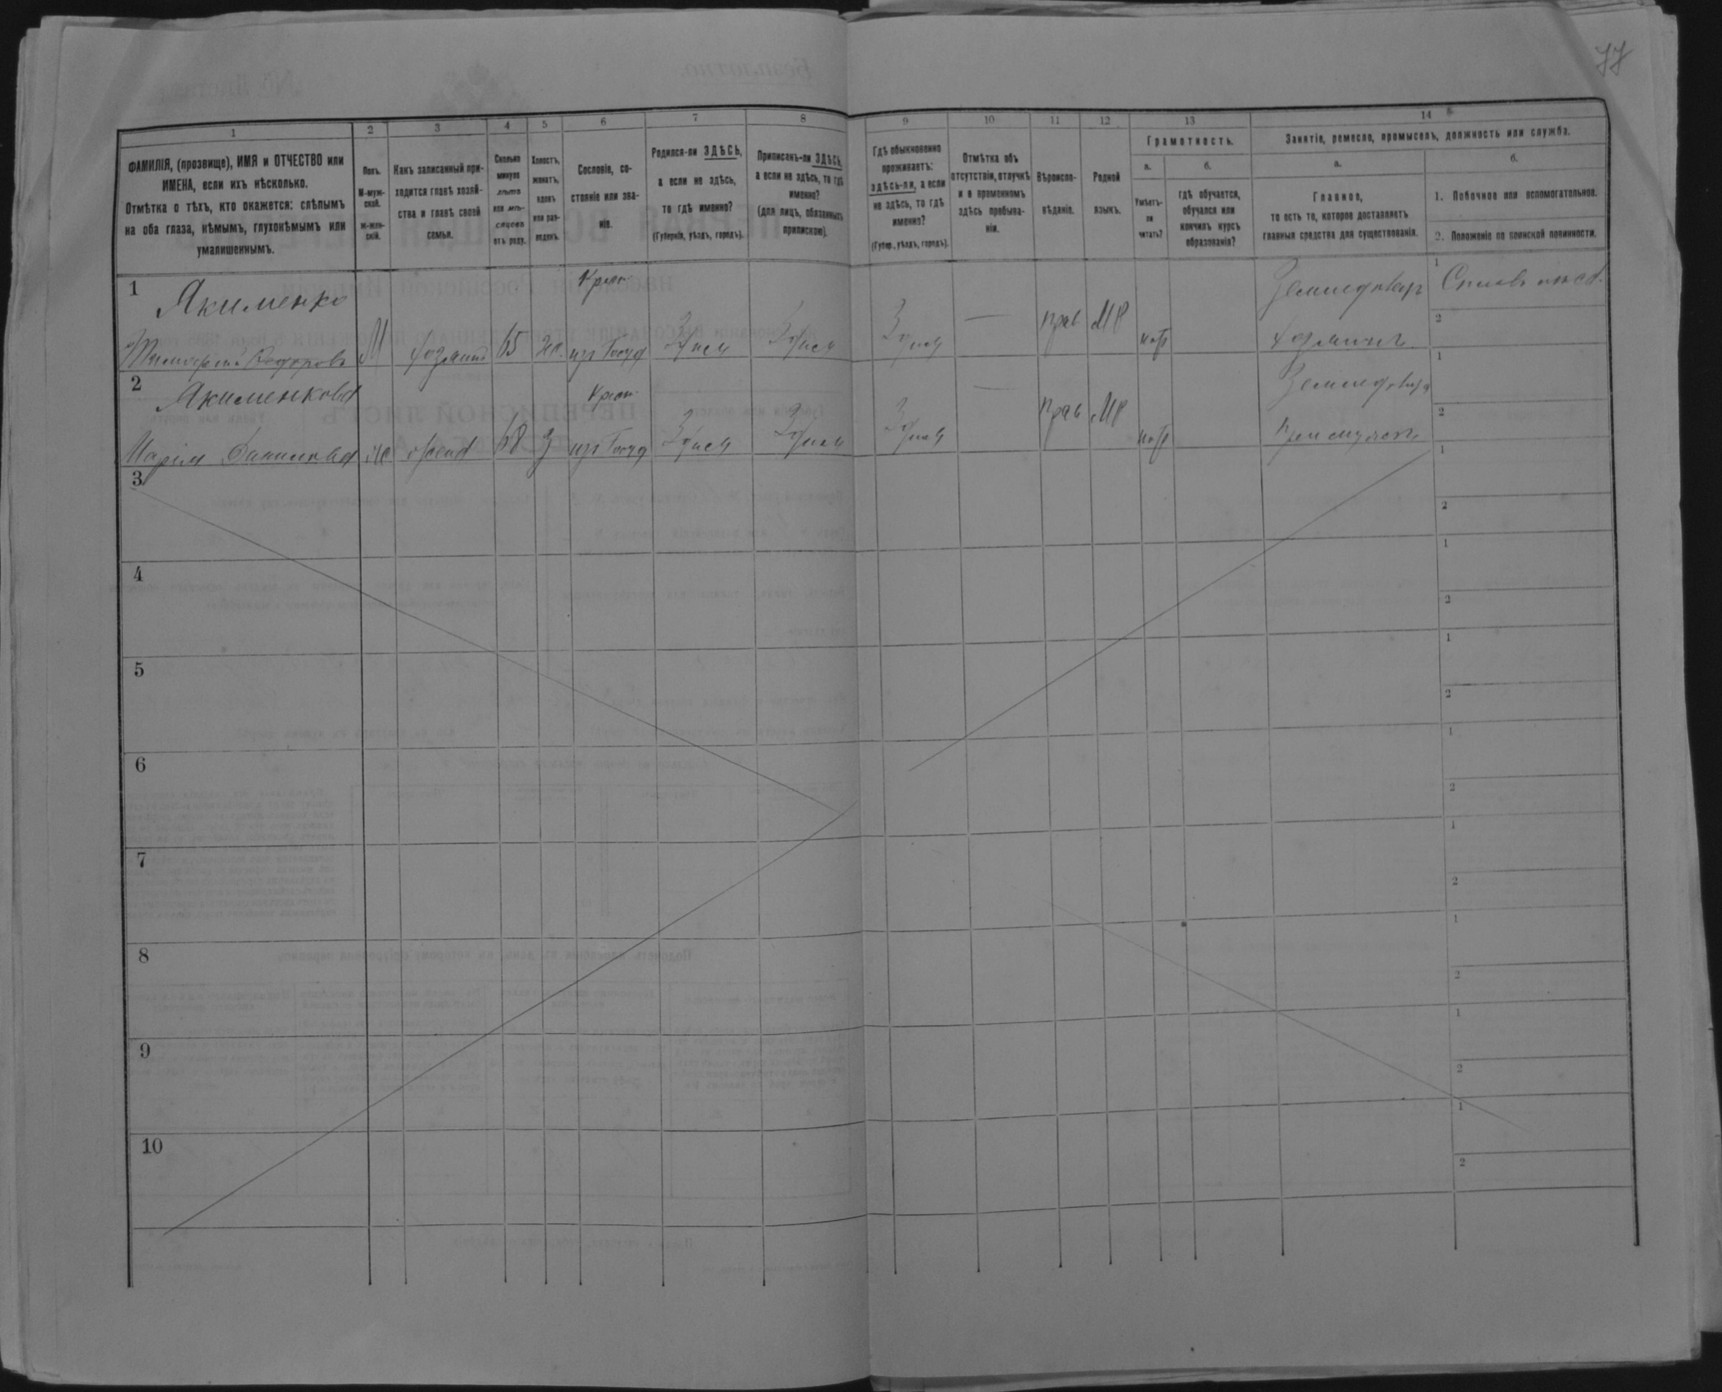 77
1
2
3
4
5
6
7
8
9
10
11
12
13
14
ФАМИЛІЯ, (прозвище), ИМЯ и ОТЧЕСТВО или
ИМЕНА, если ихъ нѣсколько.
Отмѣтка о тѣхъ, кто окажется: слѣпымъ
на оба глаза, нѣмымъ, глухонѣмымъ или
умалишеннымъ.
Полъ.
М-муж-
ской.
Ж-жен-
скій.
Какъ записанный при-
ходится главѣ хозяй-
ства и главѣ своей
семьи.
Сколько
минуло
лѣтъ
или мѣ-
сяцевъ
отъ роду.
Холостъ,
женатъ,
вдовъ
или раз-
веденъ.
Сословіе, со-
стояніе или зва-
ніе.
Родился-ли ЗДѢСЬ,
а если не здѣсь,
то гдѣ именно?
(Губернія, уѣздъ, городъ).
Приписанъ-ли ЗДѢСЬ,
а если не здѣсь, то гдѣ
именно?
(для лицъ, обязанныхъ
припискою).
Гдѣ обыкновенно
проживаетъ:
здѣсь-ли, а если
не здѣсь, то гдѣ
именно?
(Губер., уѣздъ, городъ).
Отмѣтка объ
отсутствіи, отлучкѣ
и о временномъ
здѣсь пребыва-
ніи.
Вѣроиспо-
вѣданіе.
Родной
языкъ.
Грамотность.
а.
Умѣетъ-
ли
читать?
б.
Гдѣ обучается,
обучался или
кончилъ курсъ
образованія?
Занятіе, ремесло, промыселъ, должность или служба.
а.
Главное,
то есть то, которое доставляетъ
главныя средства для существованія.
б.
1. Побочное или вспомогательное.
2. Положеніе по воинской повинности.
1
Якименко
Тимофей Федоровъ
М
хозяинъ
65
Крест
изъ Госуд
Здѣсь
Здѣсь
Здѣсь
—
прав
мр
нѣтъ
хозяинъ
1
2
2
Якименкова
Марія
ж
жена
Крест
изъ Госуд
Здѣсь
Здѣсь
Здѣсь
—
прав
мр
нѣтъ
при мужѣ
1
2
3
1
2
4
1
2
5
1
2
6
1
2
7
1
2
8
1
2
9
1
2
10
1
2